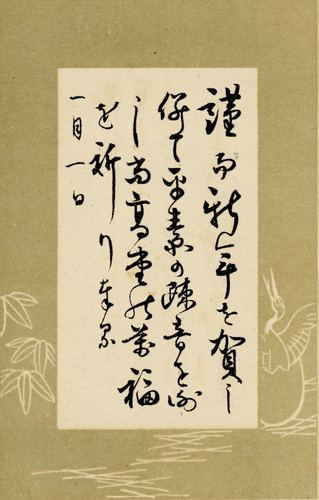 謹而新年を賀し
併て平素の疎音を謝
し尚高堂の萬福
を祈り奉候
一月一日